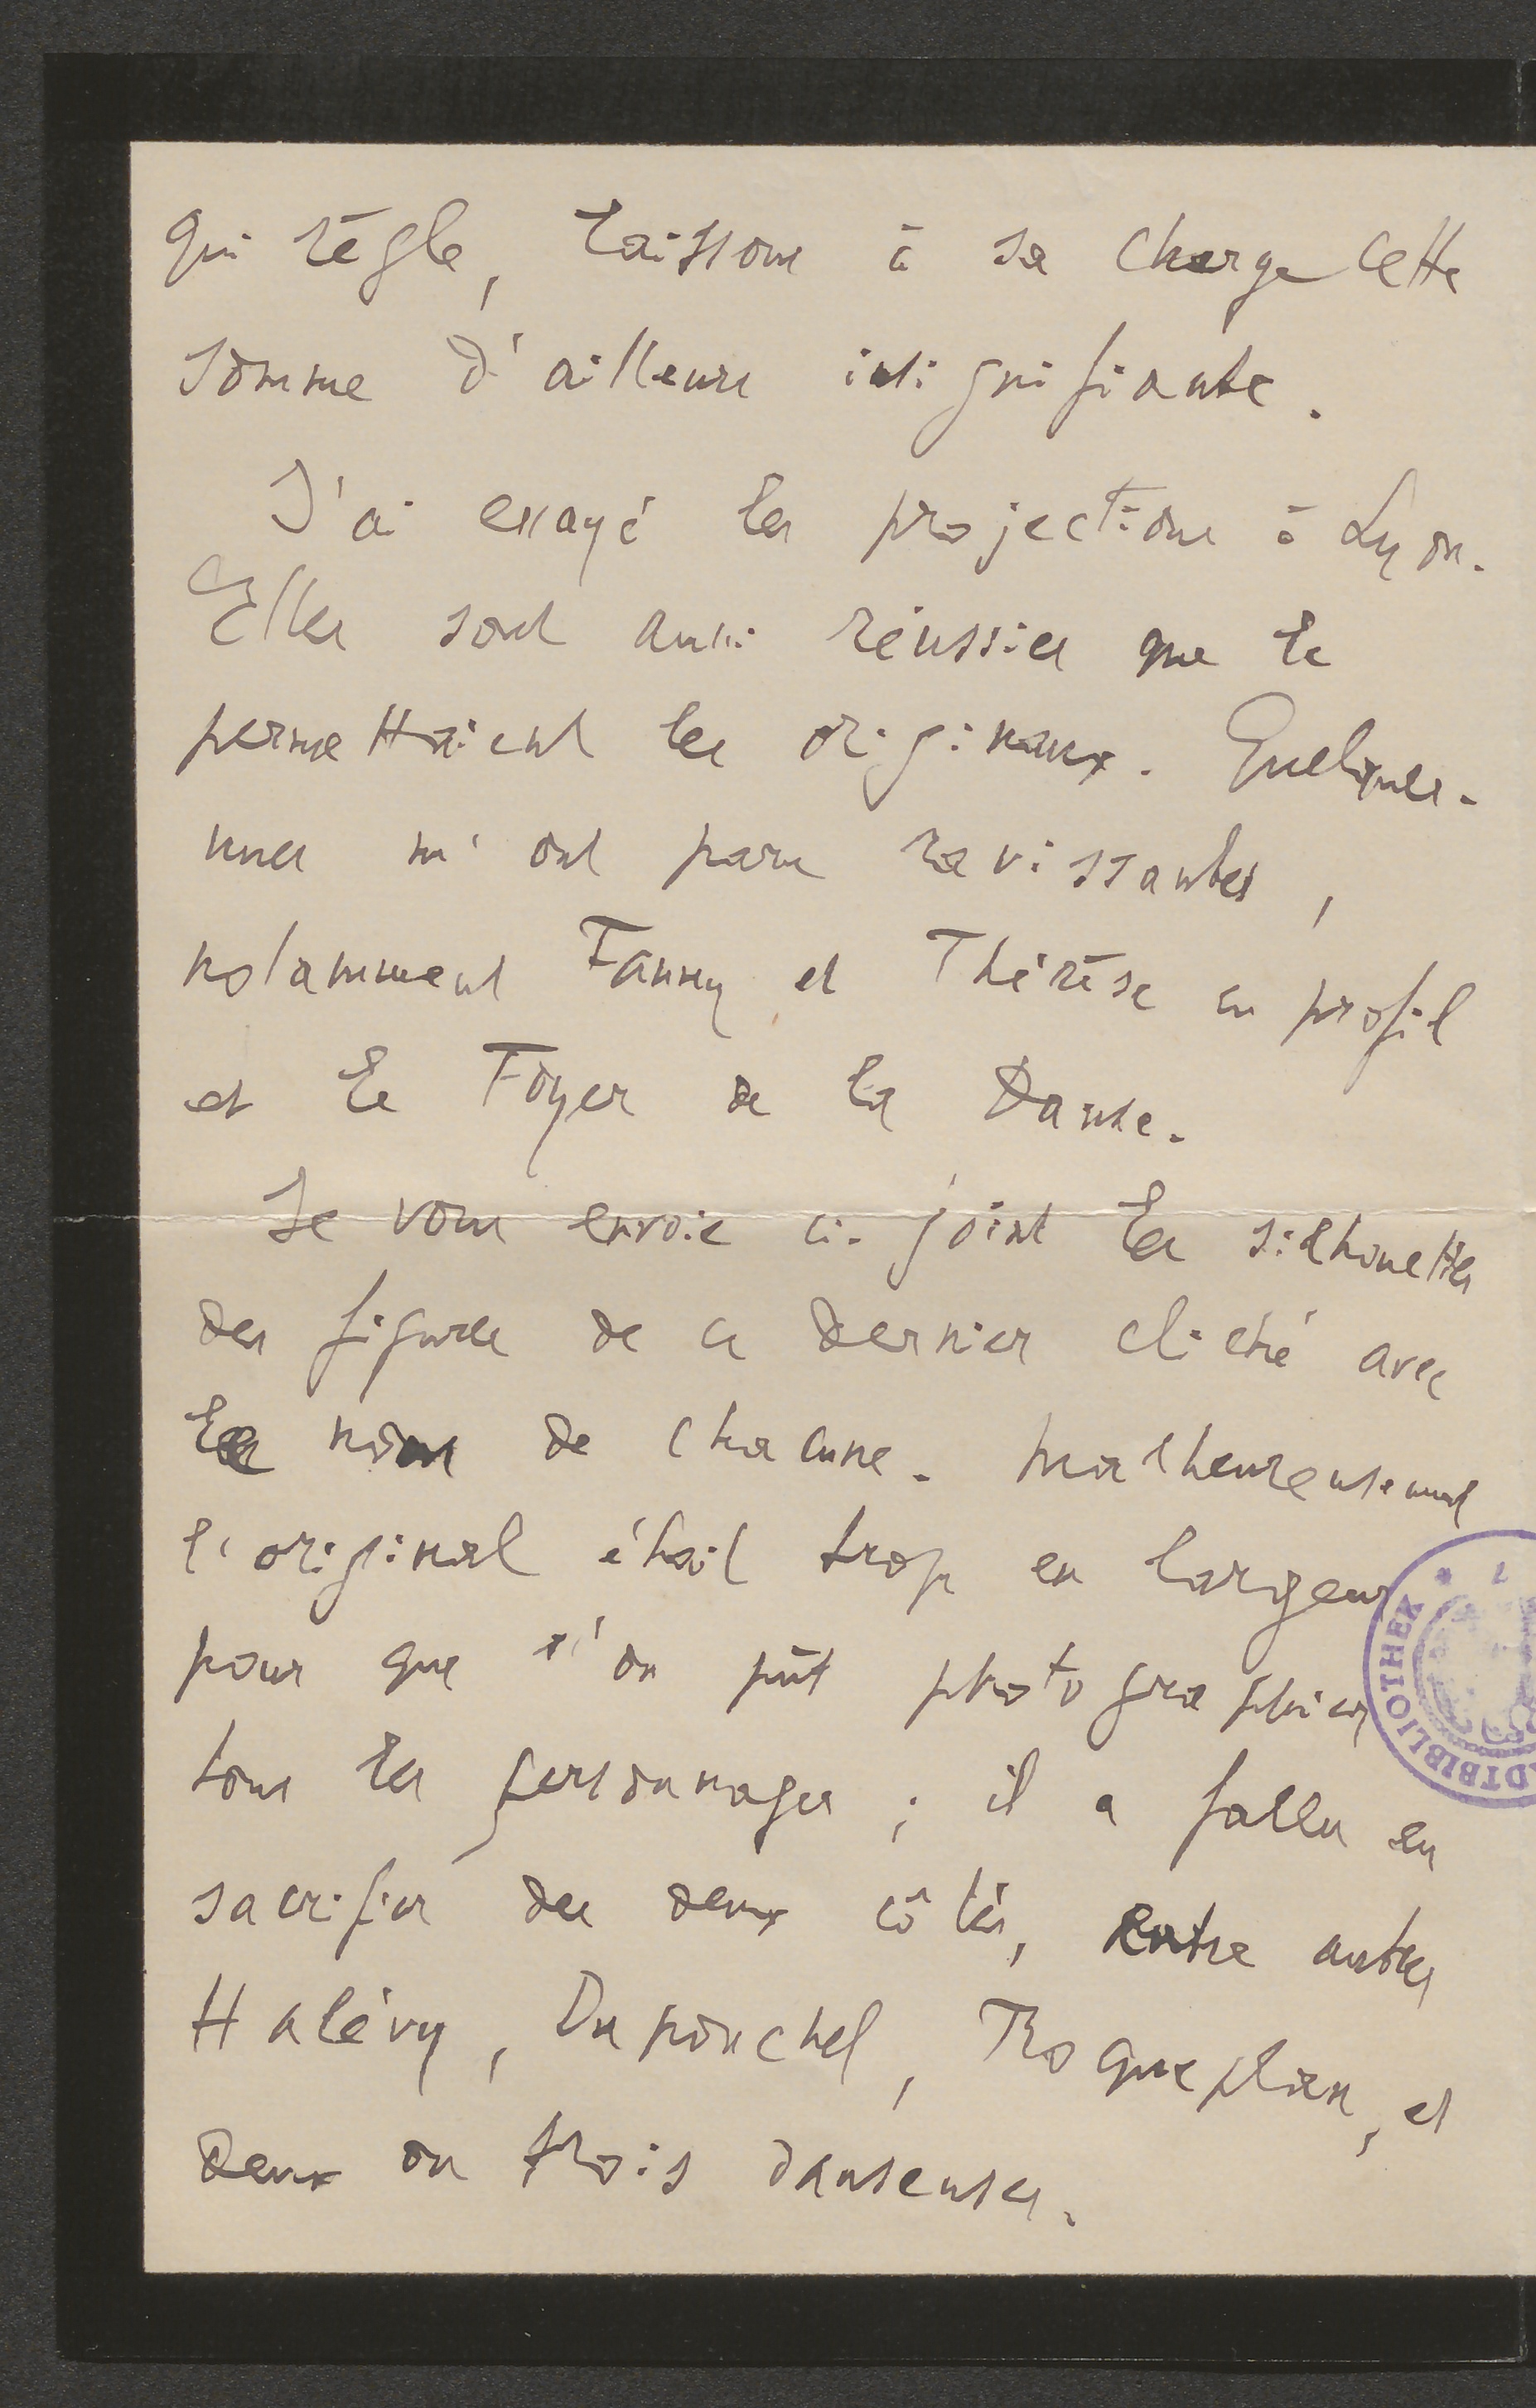 qui règle, laissons à sa charge cette
somme d'ailleurs insignifiante.
J'ai essayé les projections à Lyon.
Elles sont aussi réussies que le
permettaient les originaux. Quelques-
unes m'ont paru ravissantes,
notamment Fanny et Thérèse en profil
et le Foyer de la Danse.
Je vous envoie ci-joint les silhouettes
des figures de ce dernier cliché avec
les noms de chacune. Malheureusement
l'original était trop en largeur
pour que l'on pût photographier
tous les personnages ; il a fallu en
sacrifier des deux côtés, entre autres
Halévy, Duponchel, Roqueplan, et
deux ou trois danseuses.
DTBIBLIOTHEK *